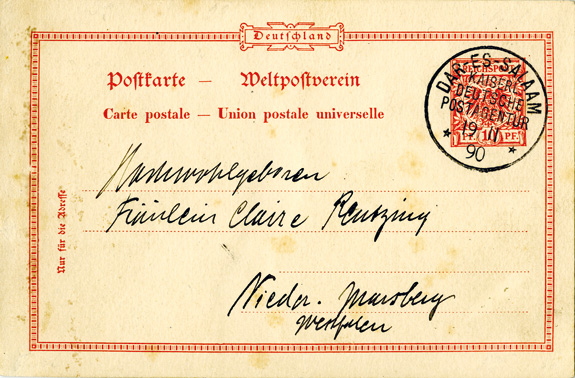 Deutschland
Postkarte — Weltpostverein
Carte postale — Union postale universelle
REICHSPOST
DAR-ES-SALAAM
KAISERL.
DEUTSCHE
POSTAGENTUR
19 11
90
10 PF.
Nur für die Adresse
Hochwohlgeboren
Fräulein Claire
Nieder-Marsberg
Westfalen